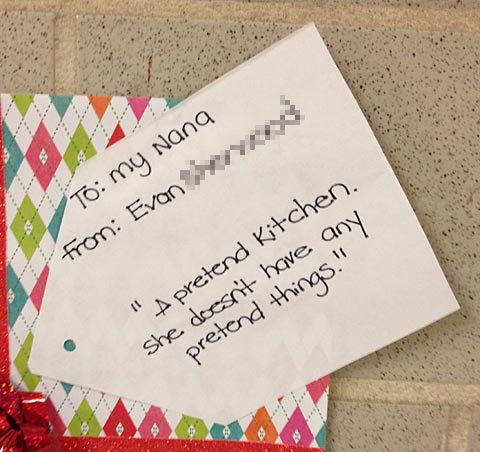 To: my Nana
From: Evan
" A pretend Kitchen.
she doesn't have any
pretend things."